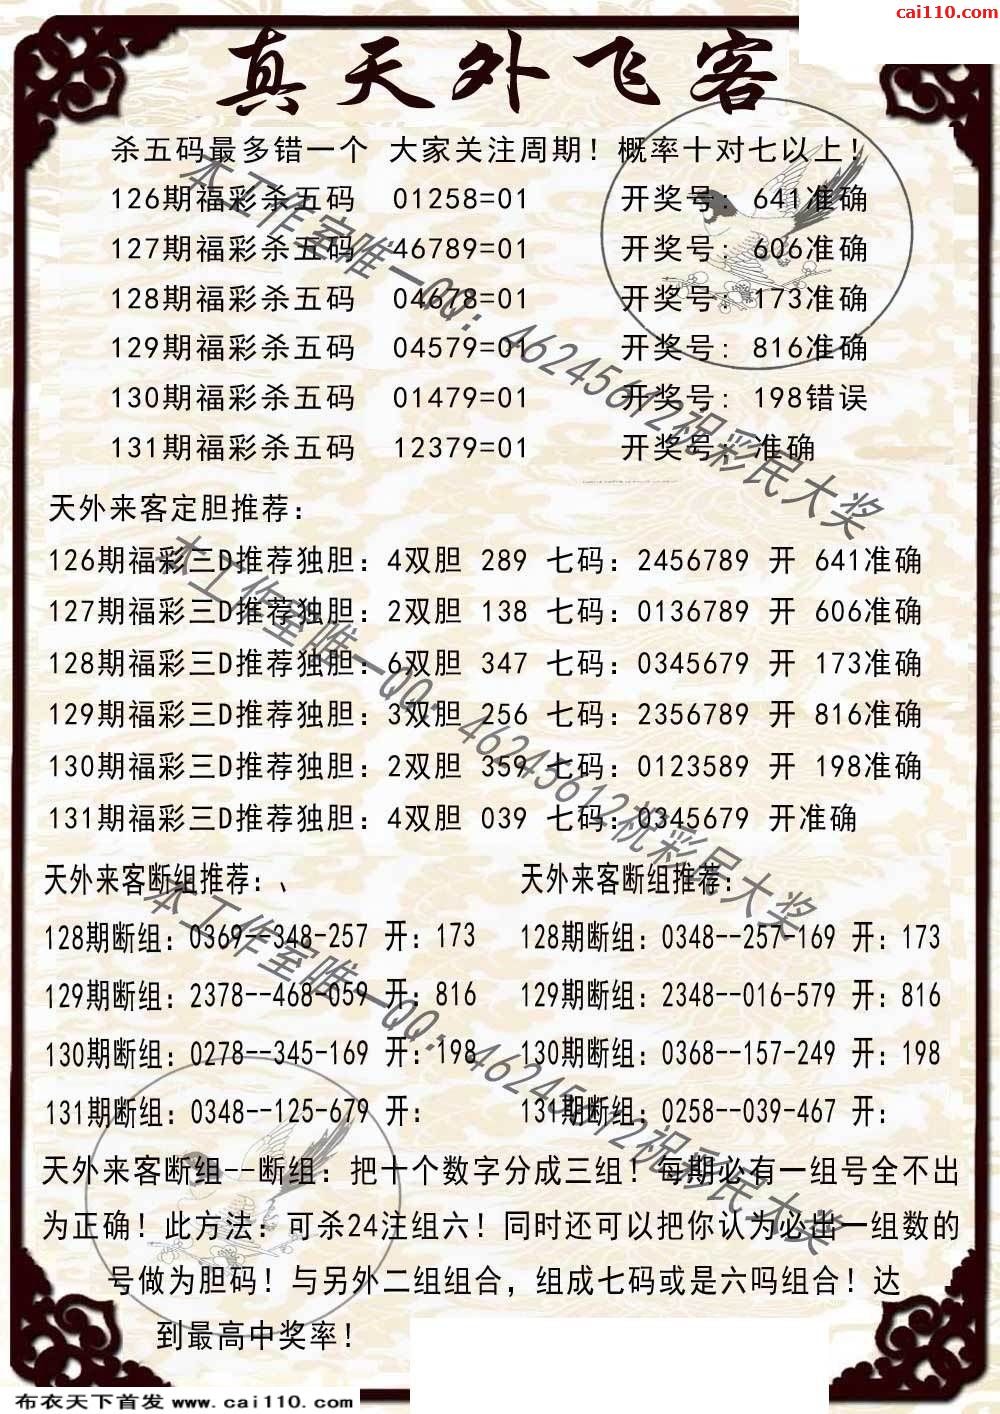 cai110.com
真天外飞客
杀五码最多错一个 大家关注周期！概率十对七以上！
126期福彩杀五码 01258=01 开奖号：641准确
127期福彩杀五码 46789=01 开奖号：606准确
128期福彩杀五码 04678=01 开奖号：173准确
129期福彩杀五码 04579=01 开奖号：816准确
130期福彩杀五码 01479=01 开奖号：198错误
131期福彩杀五码 12379=01 开奖号：准确
天外来客定胆推荐：
126期福彩三D推荐独胆：4双胆 289 七码：2456789 开 641准确
127期福彩三D推荐独胆：2双胆 138 七码：0136789 开 606准确
128期福彩三D推荐独胆：6双胆 347 七码：0345679 开 173准确
129期福彩三D推荐独胆：3双胆 256 七码：2356789 开 816准确
130期福彩三D推荐独胆：2双胆 359 七码：0123589 开 198准确
131期福彩三D推荐独胆：4双胆 039 七码：0345679 开准确
天外来客断组推荐：、 天外来客断组推荐：
128期断组：0369--348-257 开：173 128期断组：0348--257-169 开：173
129期断组：2378--468-059 开：816 129期断组：2348--016-579 开：816
130期断组：0278--345-169 开：198 130期断组：0368--157-249 开：198
131期断组：0348--125-679 开： 131期断组：0258--039-467 开：
天外来客断组--断组：把十个数字分成三组！每期必有一组号全不出
为正确！此方法：可杀24注组六！同时还可以把你认为必出一组数的
号做为胆码！与另外二组组合，组成七码或是六吗组合！达
到最高中奖率！
本工作室唯一QQ：46245612祝彩民大奖
本工作室唯一QQ：46245612祝彩民大奖
本工作室唯一QQ：46245612祝彩民大奖
布衣天下首发 www.cai110.com